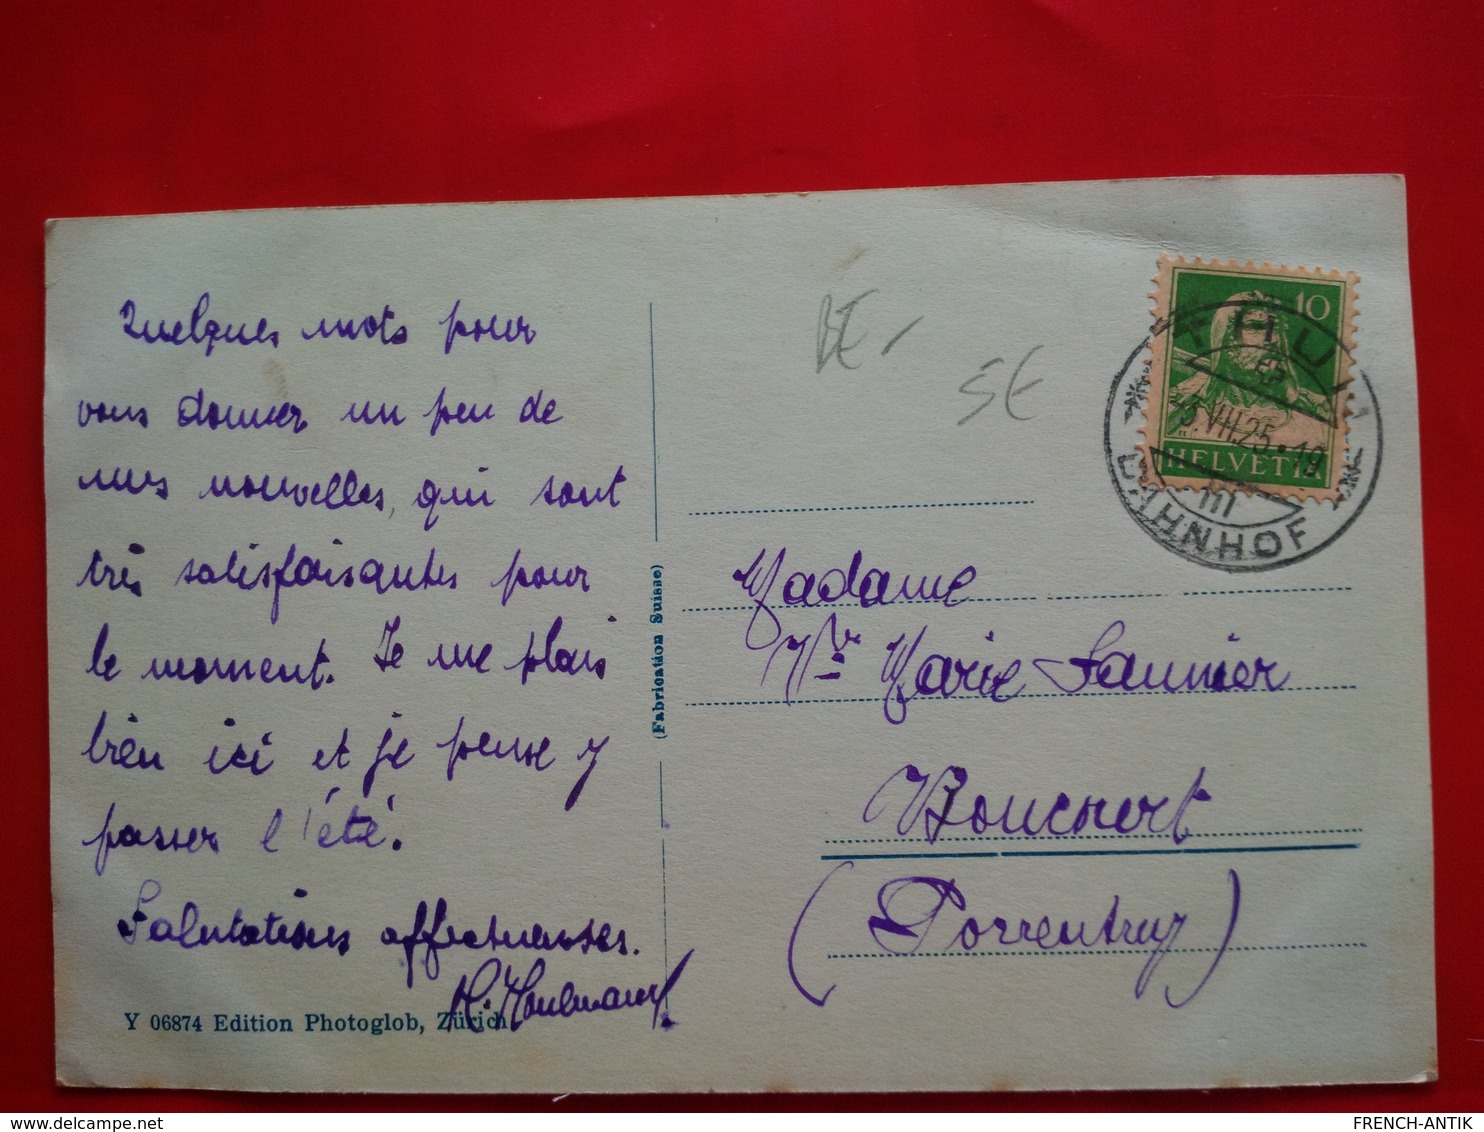 Quelques mots pour
vous donner un peu de
mes nouvelles, qui sont
très satisfaisantes pour
le moment. Je me plais
bien ici et je pense y
passer l'été.
Salutations affectueuses.
Y 06874 Edition Photoglob, Zürich
(Fabrication Suisse)
BE
SE
10
HELVETIA
THUN
3.VII.25·19
III
BAHNHOF
Madame
Vve Marie Saunier
Boncourt
(Porrentruy)
FRENCH-ANTIK